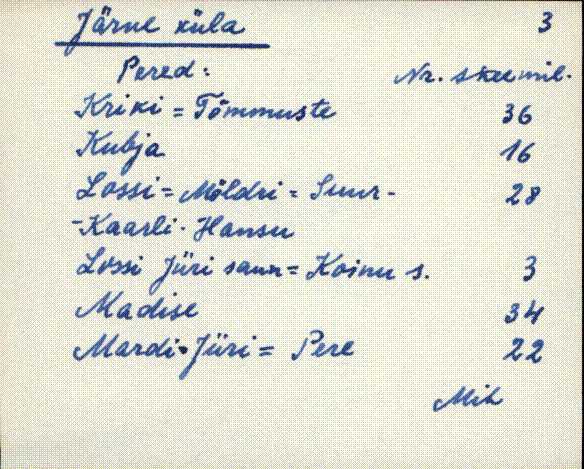 Järve küla 3
Pered: Nr. skeemil.
Kriki = Tõmmuste 36
Kubja 16
Lossi = Möldri = Suur- 28
-Kaarli. Hansu
Lossi Jüri saun = Koinu s. 3
Madise 34
Mardi-Jüri = Pere 22